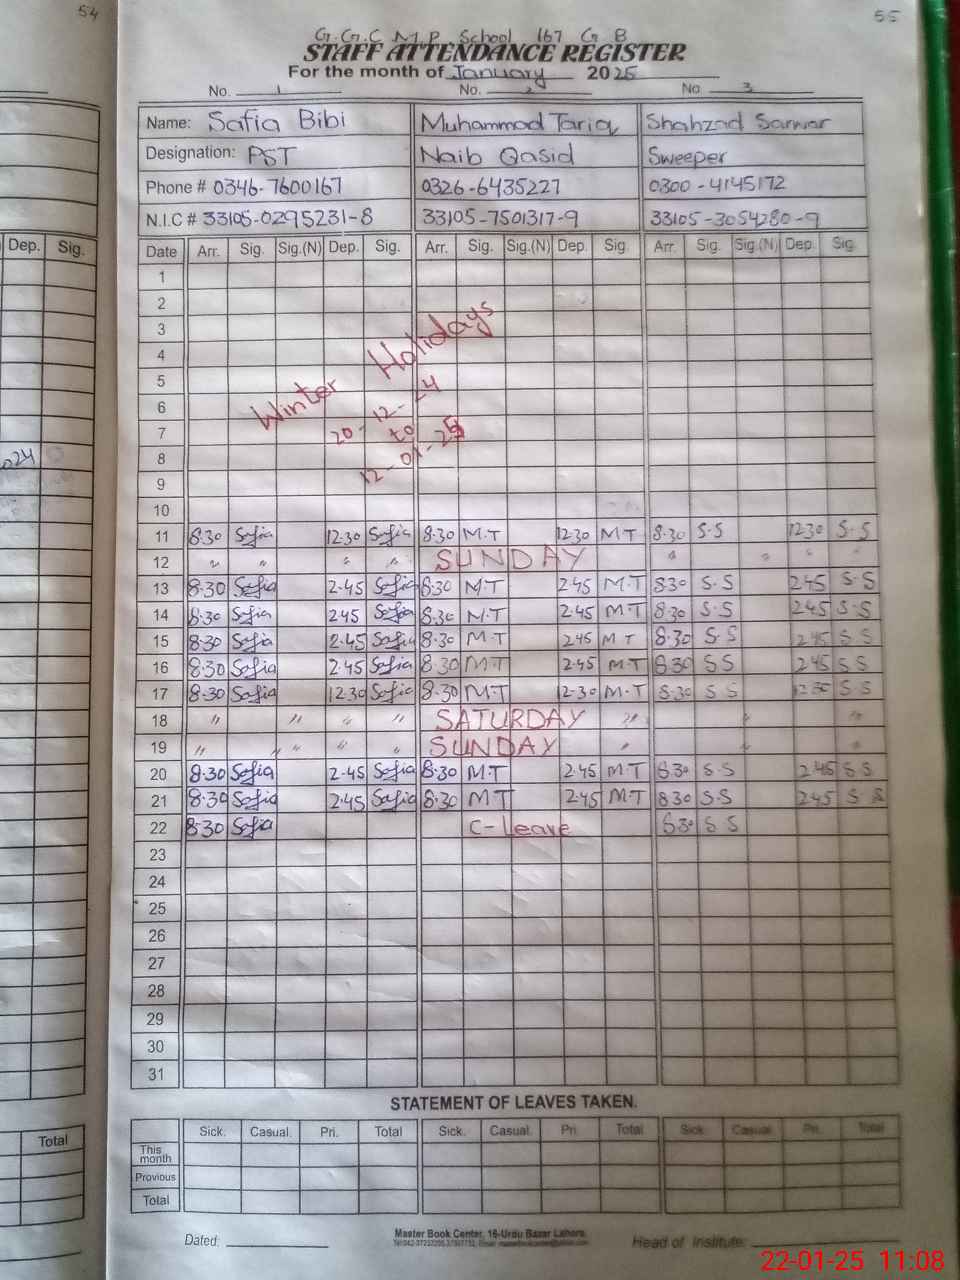 54
55
G.G.C.M.P. School 167 G B
STAFF ATTENDANCE REGISTER
For the month of January 2025
No. 1 No. 2 No 3
Name: Safia Bibi Muhammad Tariq Shahzad Sarwar
Designation: PST Naib Qasid Sweeper
Phone # 0346-7600167 0326-6435227 0300-4145172
N.I.C # 33105-0295231-8 33105-7501317-9 33105-3054280-9
Dep. Sig. Date Arr. Sig. Sig.(N) Dep. Sig. Arr. Sig. Sig.(N) Dep. Sig. Arr. Sig. Sig.(N) Dep. Sig.
1
2
3
4
5
6
7
8
9
10
Winter Holidays
20-12-24
to
12-01-25
024
11 8.30 Safia 12.30 Safia 8.30 M.T 12.30 M T 8.30 S.S 12.30 S.S
12 " " " " SUNDAY " " " "
13 8.30 Safia 2.45 Safia 8.30 M.T 2.45 M.T 8.30 S.S 2.45 S.S
14 8.30 Safia 2.45 Safia 8.30 M.T 2.45 M.T 8.30 S.S 2.45 S.S
15 8.30 Safia 2.45 Safia 8.30 M.T 2.45 M T 8.30 S.S 2.45 S S
16 8.30 Safia 2.45 Safia 8.30 M.T 2.45 M.T 8.30 S S 2.45 S S
17 8.30 Safia 12.30 Safia 8.30 M.T 12.30 M.T 8.30 S S 12.30 S S
18 " " " " SATURDAY " " "
19 " " " " " SUNDAY " " "
20 8.30 Safia 2.45 Safia 8.30 M.T 2.45 M.T 8.30 S.S 2.45 S S
21 8.30 Safia 2.45 Safia 8.30 M T 2.45 M.T 8.30 S.S 2.45 S S
22 8.30 Safia C-Leave 8.30 S S
23
24
25
26
27
28
29
30
31
STATEMENT OF LEAVES TAKEN.
Total Sick. Casual. Pri. Total Sick. Casual. Pri. Total Sick. Casual. Pri. Total
This month
Provious
Total
Dated: Master Book Center, 16-Urdu Bazar Lahore. Head of Institute:
22-01-25 11:08